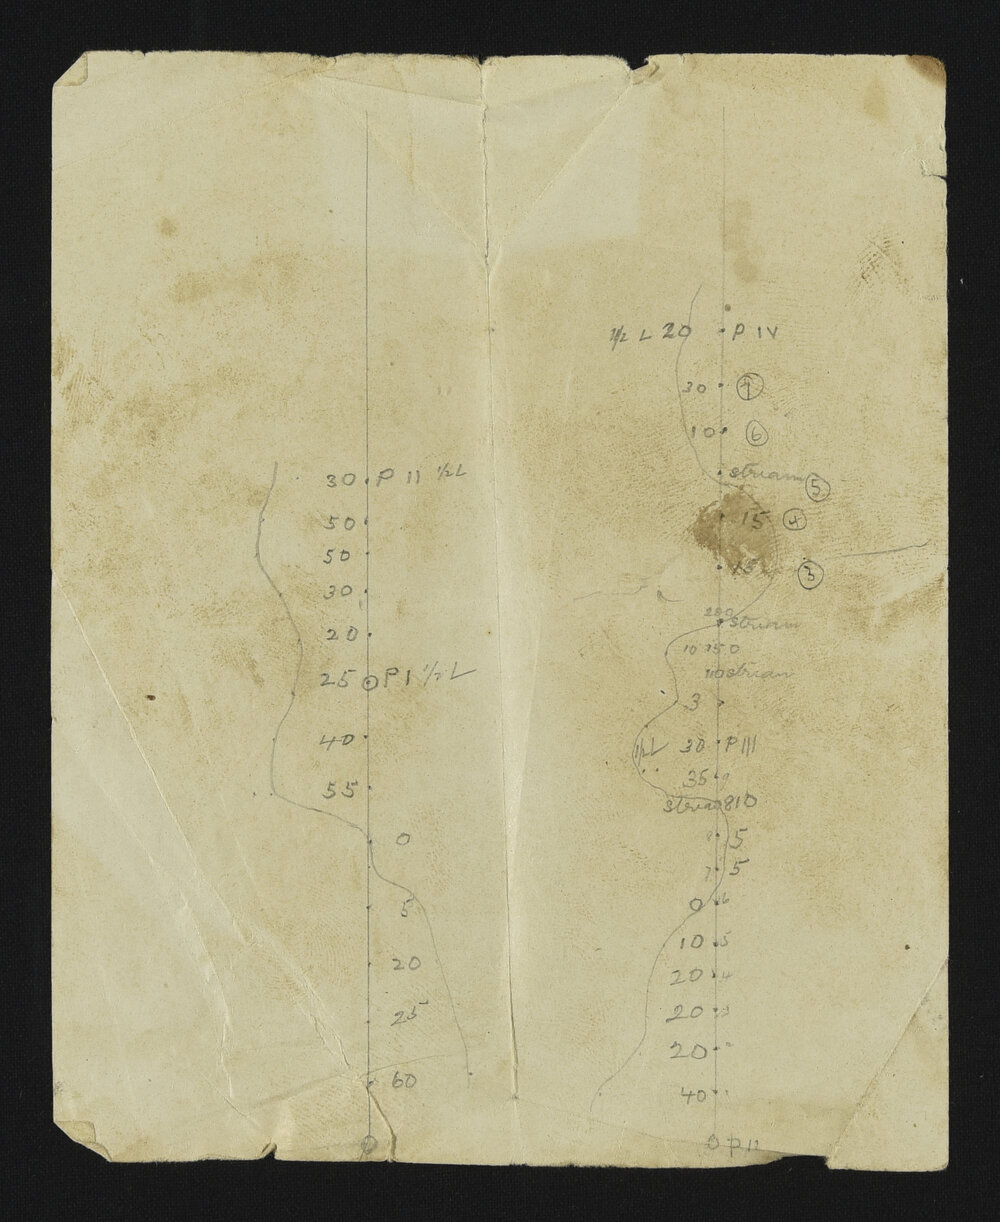 30 P II 1/2 L
50
50
30
20
25 P I 1/2 L
40
55
0
5
20
25
60
0
1/2 L 20 P IV
30 7
10 6
stream 5
15 4
15 3
stream
10
stream
3
1/2 L 30 P III
35
810
5
7 5
0 6
10 5
20 4
20 3
20
40
0 P II